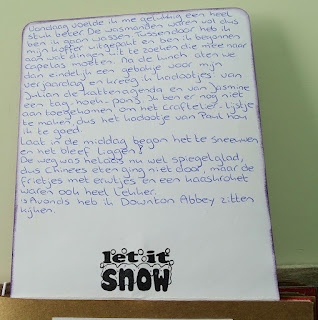 Vandaag voelde ik me gelukkig een heel
stuk beter. De wasmanden waren vol dus
ben ik gaan wassen. Tussendoor heb ik
mijn koffer uitgepakt en ben ik begonnen
aan wat dingen uit te zoeken die mee naar
moesten. Na de lunch aten we
dan eindelijk een gebakje voor mijn
verjaardag en kreeg ik kadootjes van
Julian de kattenagenda en van Jasmine
een tag-hoek-pons. Ik ben er nog niet
aan toegekomen om het Craftelier-lijstje
te maken, dus het kadootje van Paul hou
ik te goed.
Laat in de middag begon het te sneeuwen
en het bleef liggen!
De weg was helaas nu wel spiegelglad,
dus Chinees eten ging niet door, maar de
frietjes met erwtjes en een kaaskroket
waren ook heel lekker.
's Avonds heb ik Downton Abbey zitten
kijken.
let it
snow